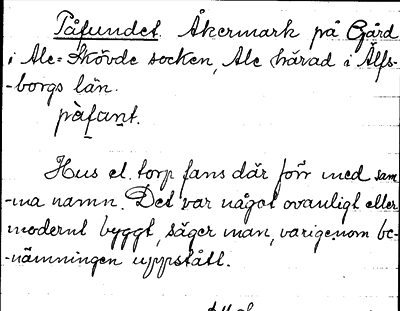 Påfundet. Åkermark på Gård
i Ale=Skövde socken, Ale härad i Älfs-
-borgs län.
påfant.
Hus el. torp fans där förr med sam
-ma namn. Det var något ovanligt eller
modernt byggt, säger man, varigenom be-
-nämningen uppstått.